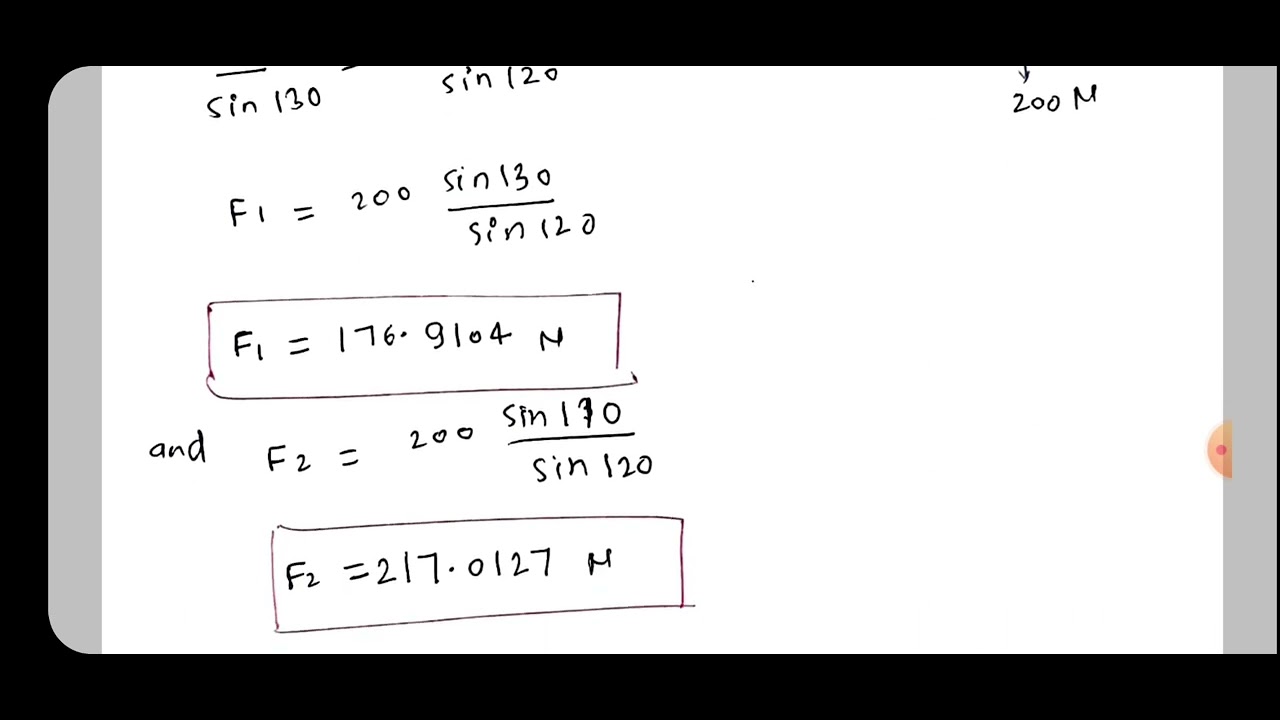 sin 130 = sin 120
200 N
F1 = 200 sin 130 / sin 120
F1 = 176.9104 N
and F2 = 200 sin 110 / sin 120
F2 = 217.0127 N